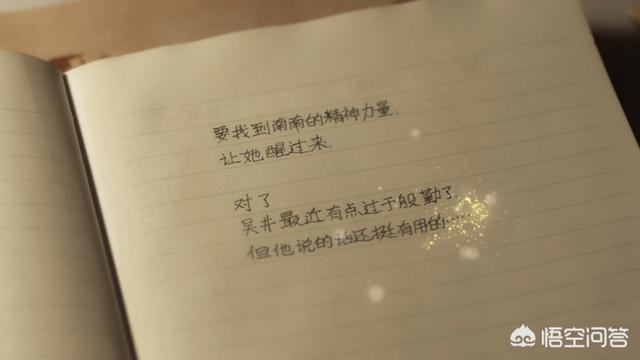 要找到南南的精神力量.
让她醒过来.
对了
吴井最近有点过于殷勤了.
但他说的话还挺有用的.....
悟空问答